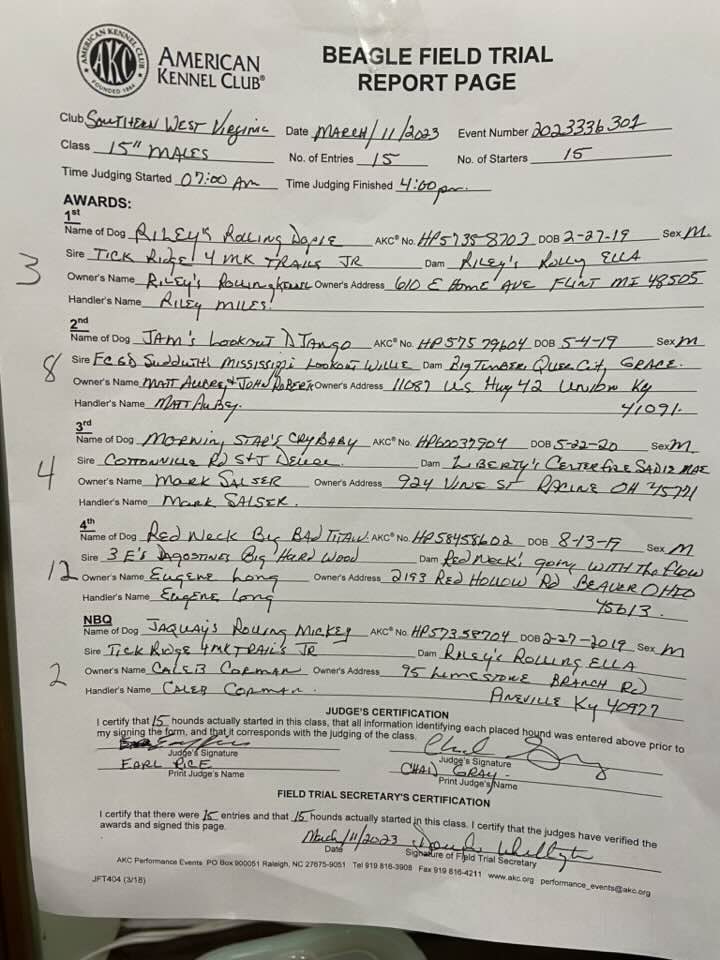 AMERICAN KENNEL CLUB
AKC
FOUNDED 1884
AMERICAN
KENNEL CLUB®
BEAGLE FIELD TRIAL
REPORT PAGE
Club Southern West Virginia Date March/11/2023 Event Number 2023336301
Class 15" Males No. of Entries 15 No. of Starters 15
Time Judging Started 07:00 Am Time Judging Finished 4:00 pm.
AWARDS:
1st
Name of Dog Riley's Rolling Dopie AKC® No. HP5735-8703 DOB 2-27-19 Sex M.
3 Sire Tick Ridge 4 MK Trails JR Dam Riley's Rolly Ella
Owner's Name Riley's Rolling Kennel Owner's Address 610 E Home Ave Flint MI 48505
Handler's Name Riley Miles.
2nd
Name of Dog JAM's Lookout DJango AKC® No. HP57579604 DOB 5-4-19 Sex M
8 Sire FC GD Suddwith Mississippi Lookout Willie Dam Big Timber Quen City Grace.
Owner's Name Matt Aubrey & John Roberts Owner's Address 11087 U.S. Hwy 42 Union Ky
Handler's Name Matt Aubry. 41091.
3rd
Name of Dog Morning Star's CryBaby AKC® No. HP60037904 DOB 5-22-20 Sex M
4 Sire Cottonville Rd S&J Dam Liberty's Centerfire Sadiz Mae
Owner's Name Mark Salser Owner's Address 924 Vine St Racine OH 45771
Handler's Name Mark Salser.
4th
Name of Dog Red Neck Big Bad Titan AKC® No. HP58458602 DOB 8-13-19 Sex M
Sire 3 E's Dagostines Big Hard Wood Dam Red Neck's going with the flow
12 Owner's Name Eugene Long Owner's Address 2193 Red Hollow Rd Beaver Ohio
Handler's Name Eugene Long 45613.
NBQ
Name of Dog Jaquay's Rolling Mickey AKC® No. HP57358704 DOB 2-27-2019 Sex M
Sire Tick Ridge 4MK Trails JR Dam Riley's Rolling Ella
2 Owner's Name Caleb Corman Owner's Address 95 Limestone Branch Rd
Handler's Name Caleb Corman. Pineville Ky 40977
JUDGE'S CERTIFICATION
I certify that 15 hounds actually started in this class, that all information identifying each placed hound was entered above prior to
my signing the form, and that it corresponds with the judging of the class.
Judge's Signature Judge's Signature
Earl Rice Chad Gray.
Print Judge's Name Print Judge's Name
FIELD TRIAL SECRETARY'S CERTIFICATION
I certify that there were 15 entries and that 15 hounds actually started in this class. I certify that the judges have verified the
awards and signed this page.
March/11/2023
Date Signature of Field Trial Secretary
AKC Performance Events PO Box 900051 Raleigh, NC 27675-9051 Tel 919 816-3908 Fax 919 816-4211 www.akc.org performance_events@akc.org
JFT404 (3/18)